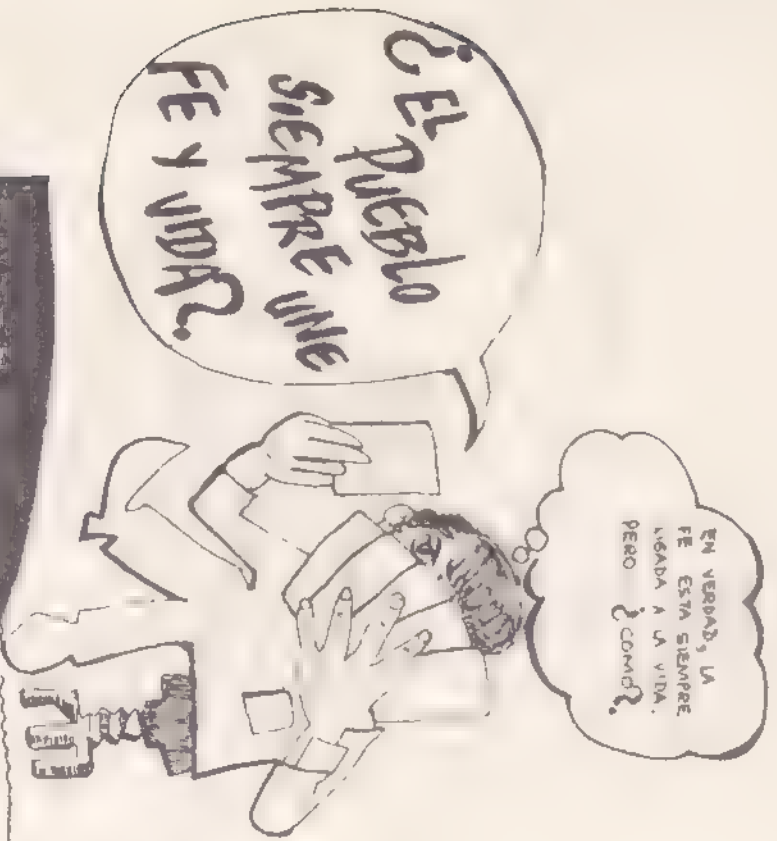 ¿EL
PUEBLO
SIEMPRE UNE
FE Y VIDA?
EN VERDAD, LA
FE ESTA SIEMPRE
LIGADA A LA VIDA.
PERO ¿COMO?